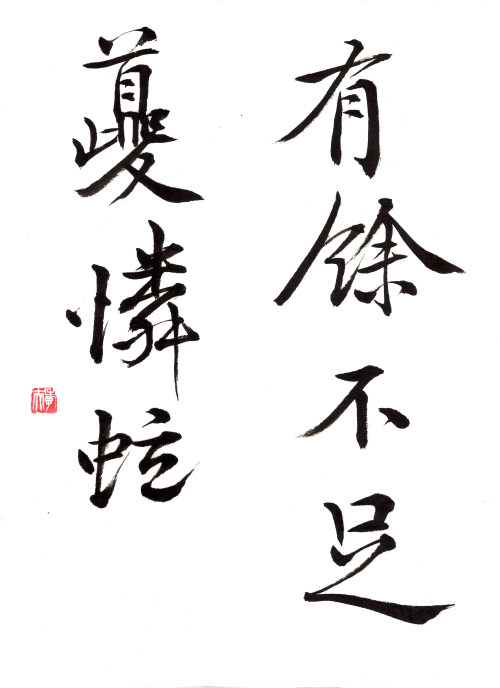 有餘不足
夔憐蚿